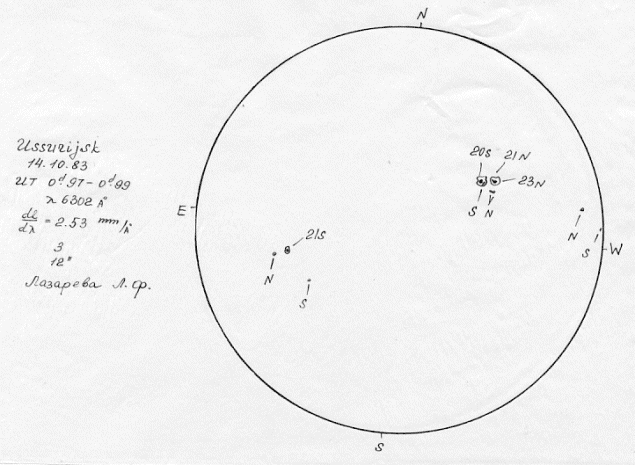 Ussurijsk
14.10.83
UT 0ᵈ.97 – 0ᵈ.99
λ 6302 Å
dl/dλ = 2.53 mm/Å
3
12"
Лазарева Л.Ф.
N
20S 21N
23N
S N
E
21S
N
S
N
S
W
S